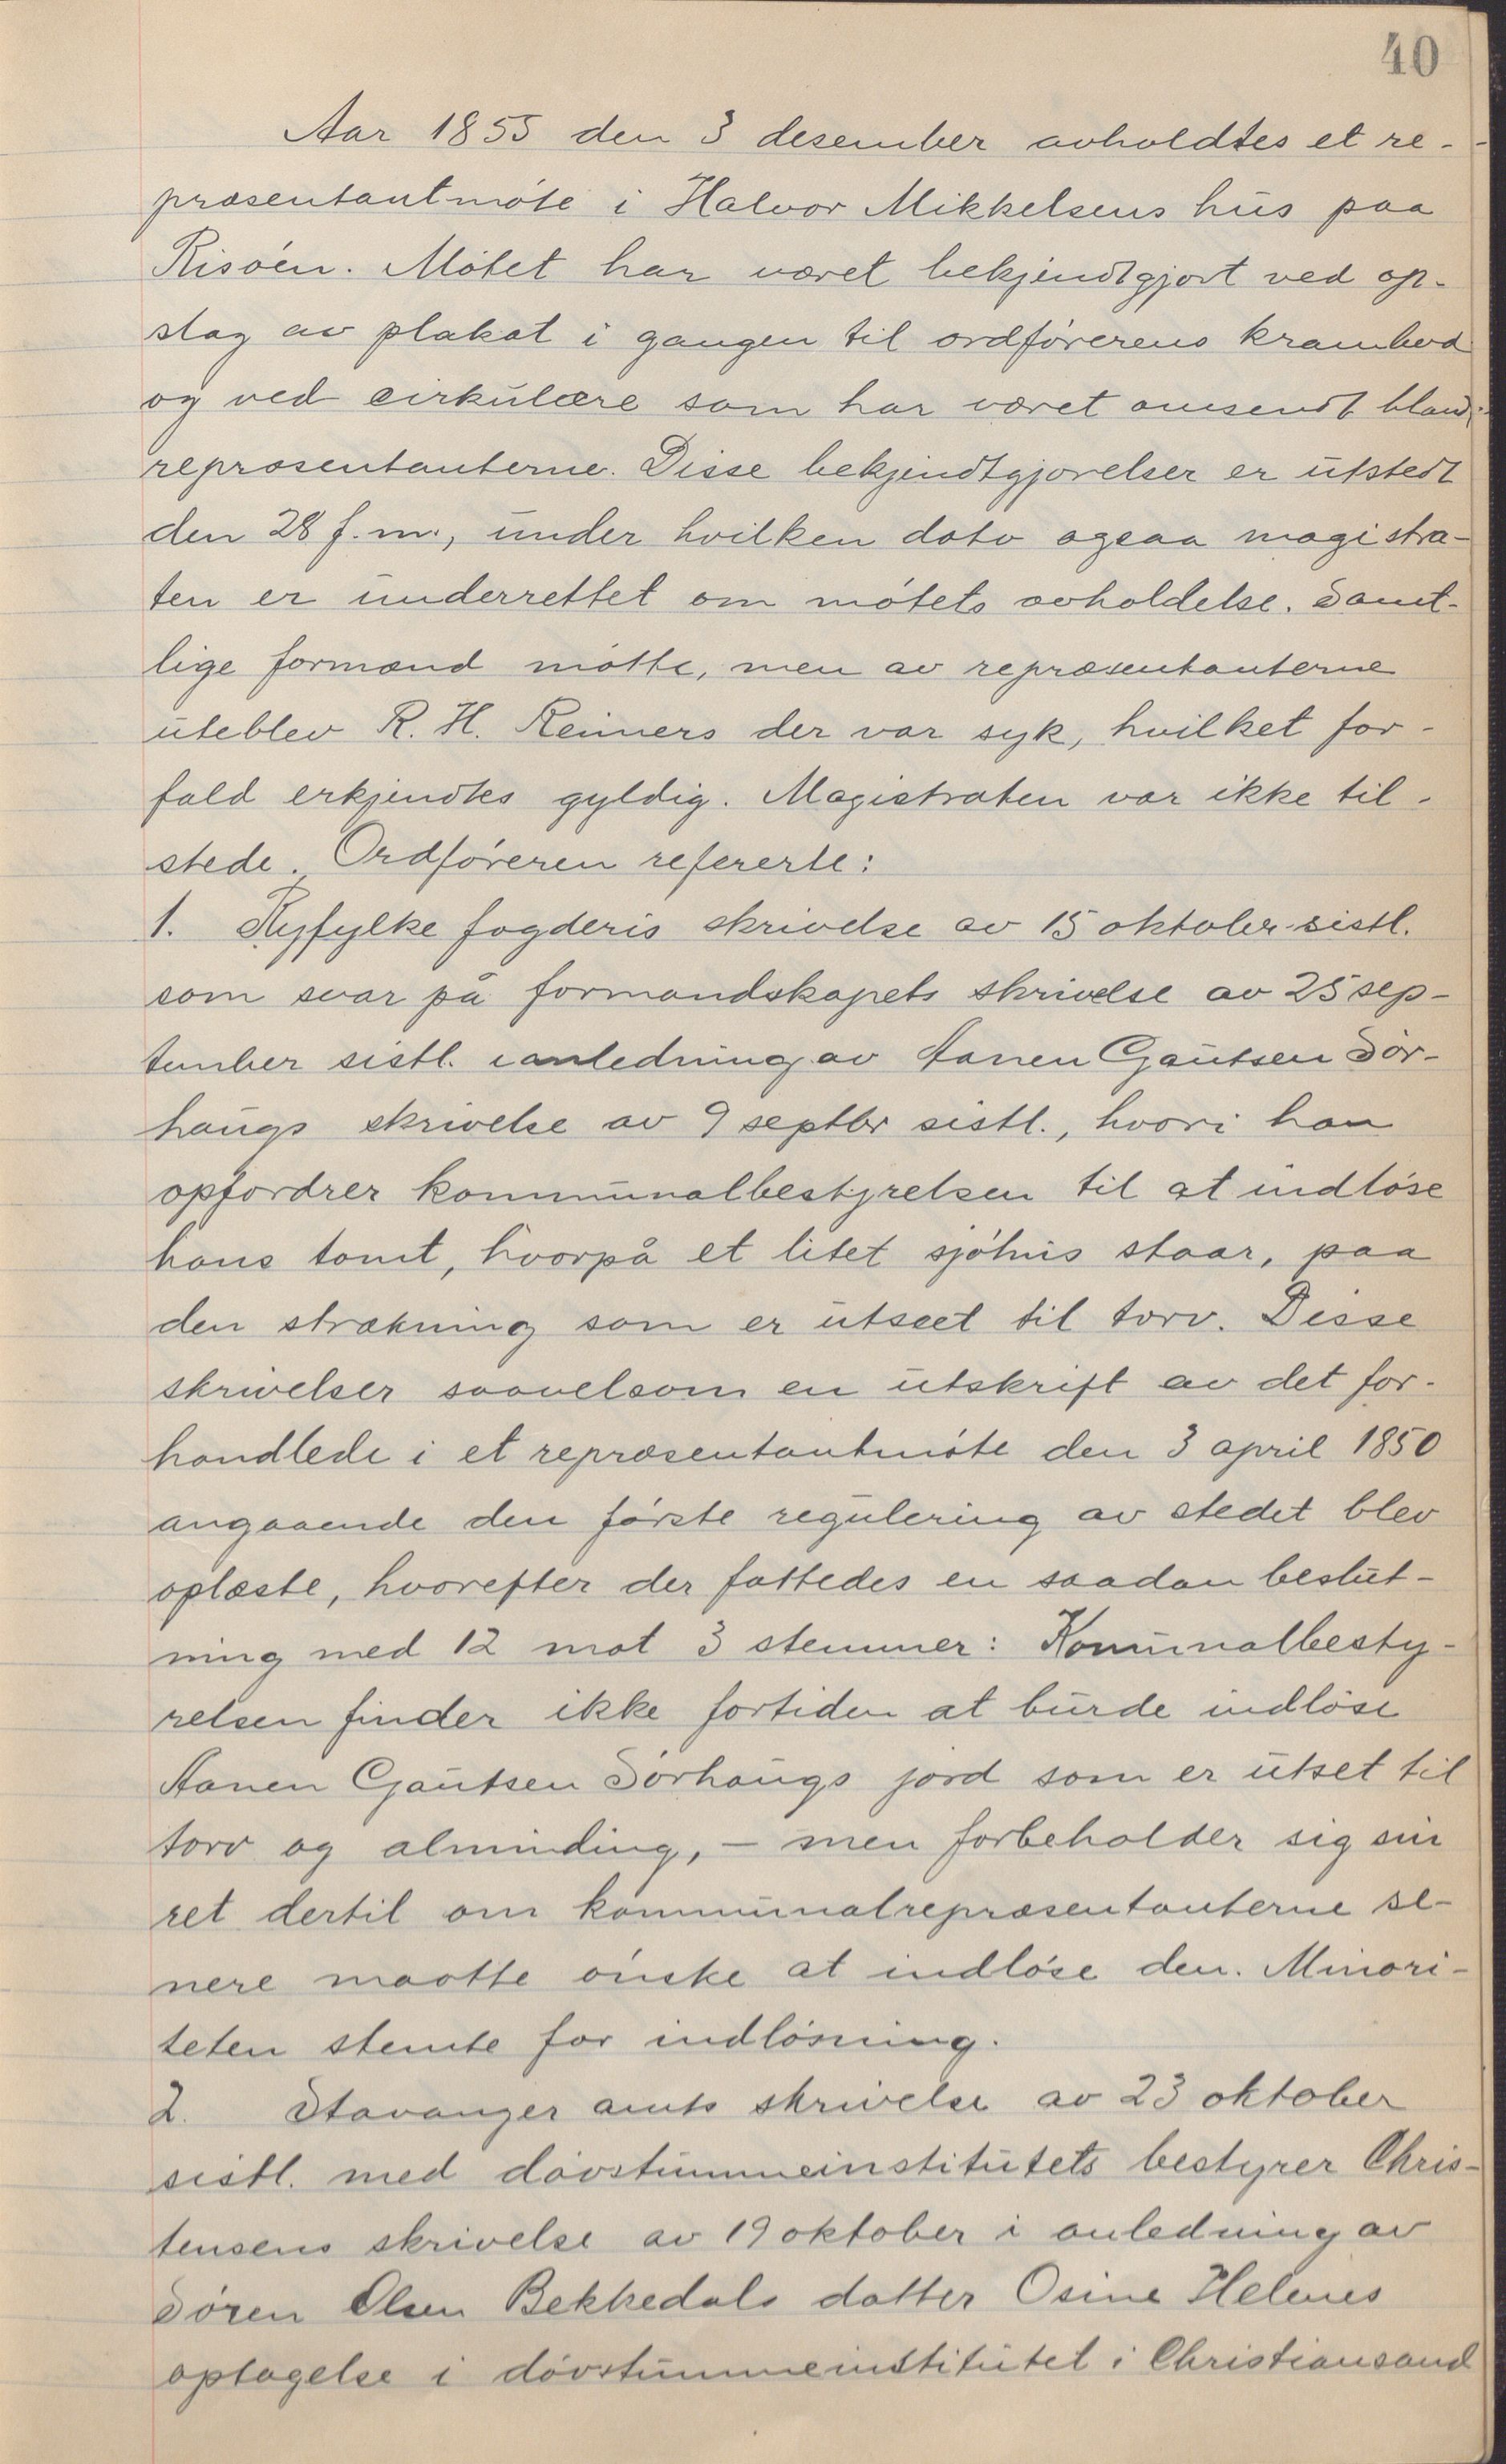 40
Aar 1855 den 3 desember avholdtes et re-
præsentantmöte i Halvor Mikkelsens hus paa
Risöen. Mötet har været bekjendtgjort ved op-
slag av plakat i gangen til ordförerens krambod
og ved cirkulære som har været omsendt bland
repræsentanterne. Disse bekjendtgjörelser er utstedt
den 28 f.m., under hvilken dato ogsaa magistra-
ten er underrettet om mötets avholdelse. Samt-
lige formænd mötte, men av repræsentanterne
uteblev R. H. Reimers der var syk, hvilket for-
fald erkjendtes gyldig. Magistraten var ikke til-
stede. Ordföreren refererte:
1. Ryfylke fogderis skrivelse av 15 oktober sistl.
som svar på formandskapets skrivelse av 25 sep-
tember sistl. i anledning av Aanen Gautsen Sör-
haugs skrivelse av 9 septbr sistl., hvori han
opfordrer kommunalbestyrelsen til at indlöse
hans tomt, hvorpå et litet sjöhus staar, paa
den strækning som er utseet til torv. Disse
skrivelser saavelsom en utskrift av det for-
handlede i et repræsentantmöte den 3 april 1850
angaaende den förste regulering av stedet blev
oplæste, hvorefter der fattedes en saadan beslut-
ning med 12 mot 3 stemmer: Komunalbesty-
relsen finder ikke fortiden at burde indlöse
Aanen Gautsen Sörhaugs jord som er utset til
torv og alminding, – men forbeholder sig sin
ret dertil om kommunalrepræsentanterne se-
nere maatte önske at indlöse den. Minori-
teten stemte for indlösning.
2. Stavanger amts skrivelse av 23 oktober
sistl. med dövstummeinstitutets bestyrer Chris-
tensens skrivelse av 19 oktober i anledning av
Sören Olsen Bekkedals datter Osine Helenes
optagelse i dövstummeinstitutet i Christiansand